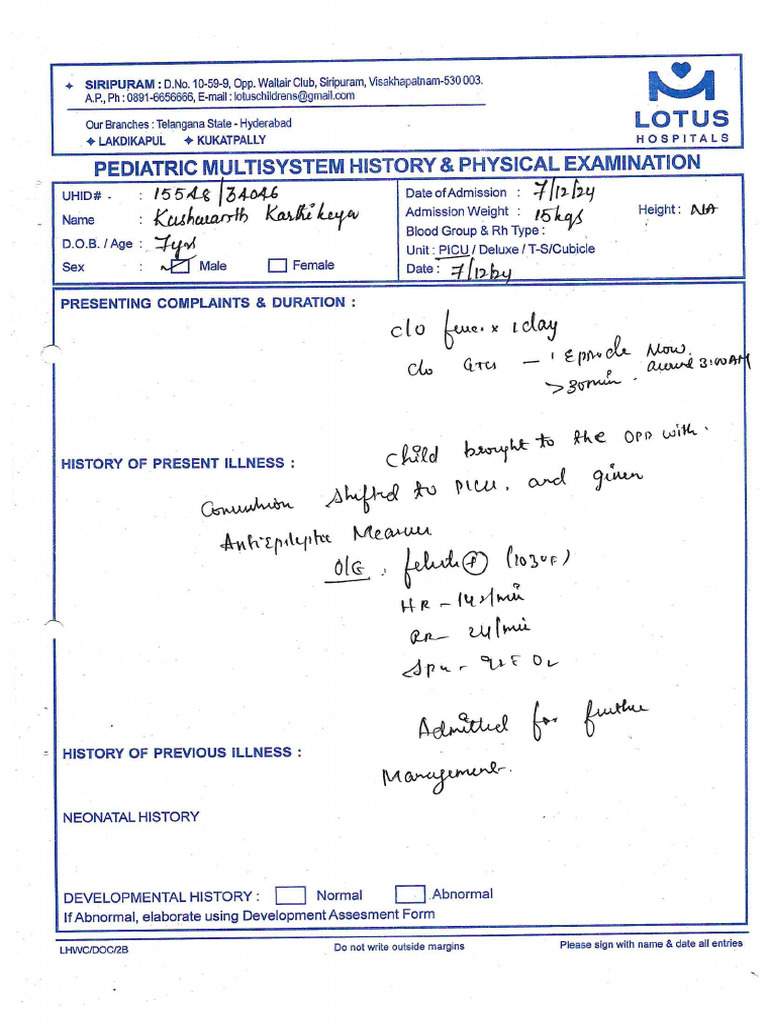 SIRIPURAM : D.No. 10-59-9, Opp. Waltair Club, Siripuram, Visakhapatnam-530 003.
A.P., Ph : 0891-6656666, E-mail : lotuschildrens@gmail.com
Our Branches : Telangana State - Hyderabad
LAKDIKAPUL KUKATPALLY
LOTUS
HOSPITALS
PEDIATRIC MULTISYSTEM HISTORY & PHYSICAL EXAMINATION
UHID# : 15548/34046
Name : Kashwanth Karthikeya
D.O.B. / Age : 7yrs
Sex : Male Female
Date of Admission : 7/12/24
Admission Weight : 15kgs Height : NA
Blood Group & Rh Type :
Unit : PICU / Deluxe / T-S/Cubicle
Date : 7/12/24
PRESENTING COMPLAINTS & DURATION :
c/o fever x 1 day
c/o GTCS — 1 Episode Now
>30min. around 3:00AM
HISTORY OF PRESENT ILLNESS :
Child brought to the OPD with
Convulsion shifted to PICU, and given
Antiepileptic Measures
O/E. febrile (+) (103°F)
HR - 142/min
RR - 24/min
SpO2 - 92%
Admitted for further
Management.
HISTORY OF PREVIOUS ILLNESS :
NEONATAL HISTORY
DEVELOPMENTAL HISTORY : Normal Abnormal
If Abnormal, elaborate using Development Assesment Form
LHWC/DOC/2B
Do not write outside margins
Please sign with name & date all entries